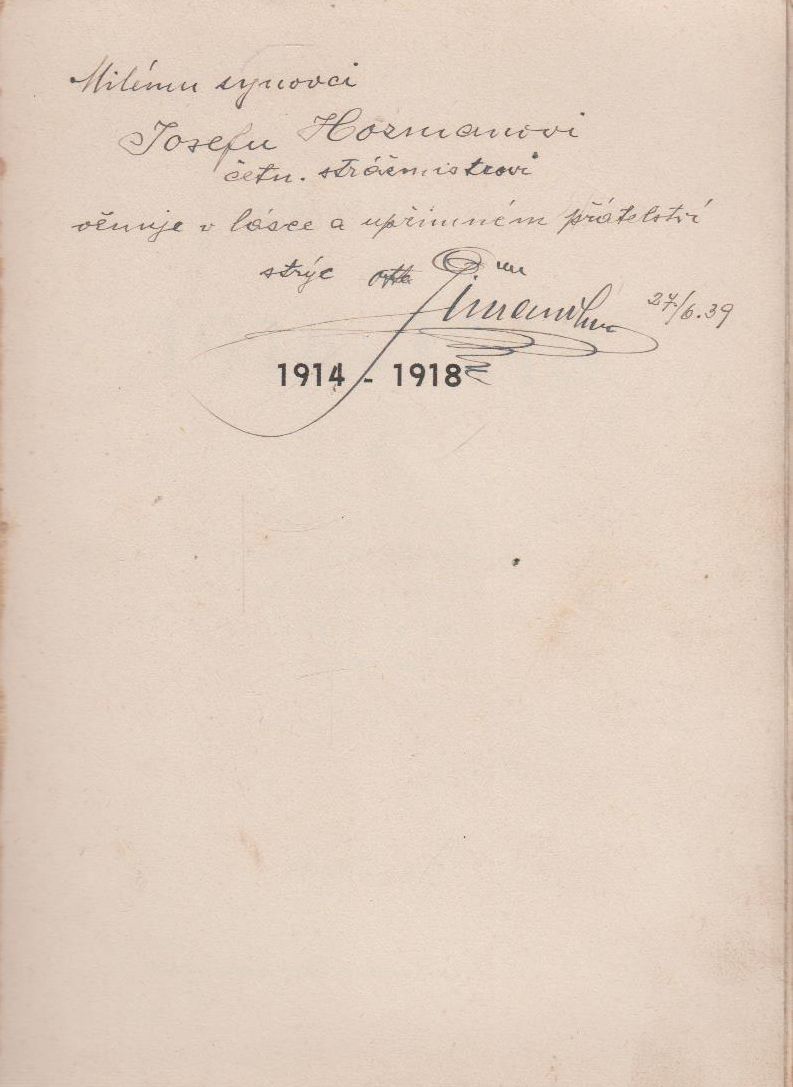 Milému synovci
Josefu Hozmanovi
četn. strážmistrovi
věnuje v lásce a upřímném přátelství
strýc 27/6.39
1914 - 1918